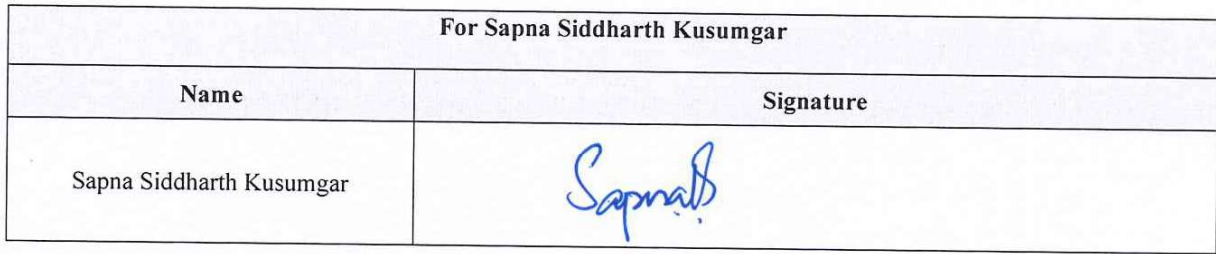 For Sapna Siddharth Kusumgar
Name Signature
Sapna Siddharth Kusumgar